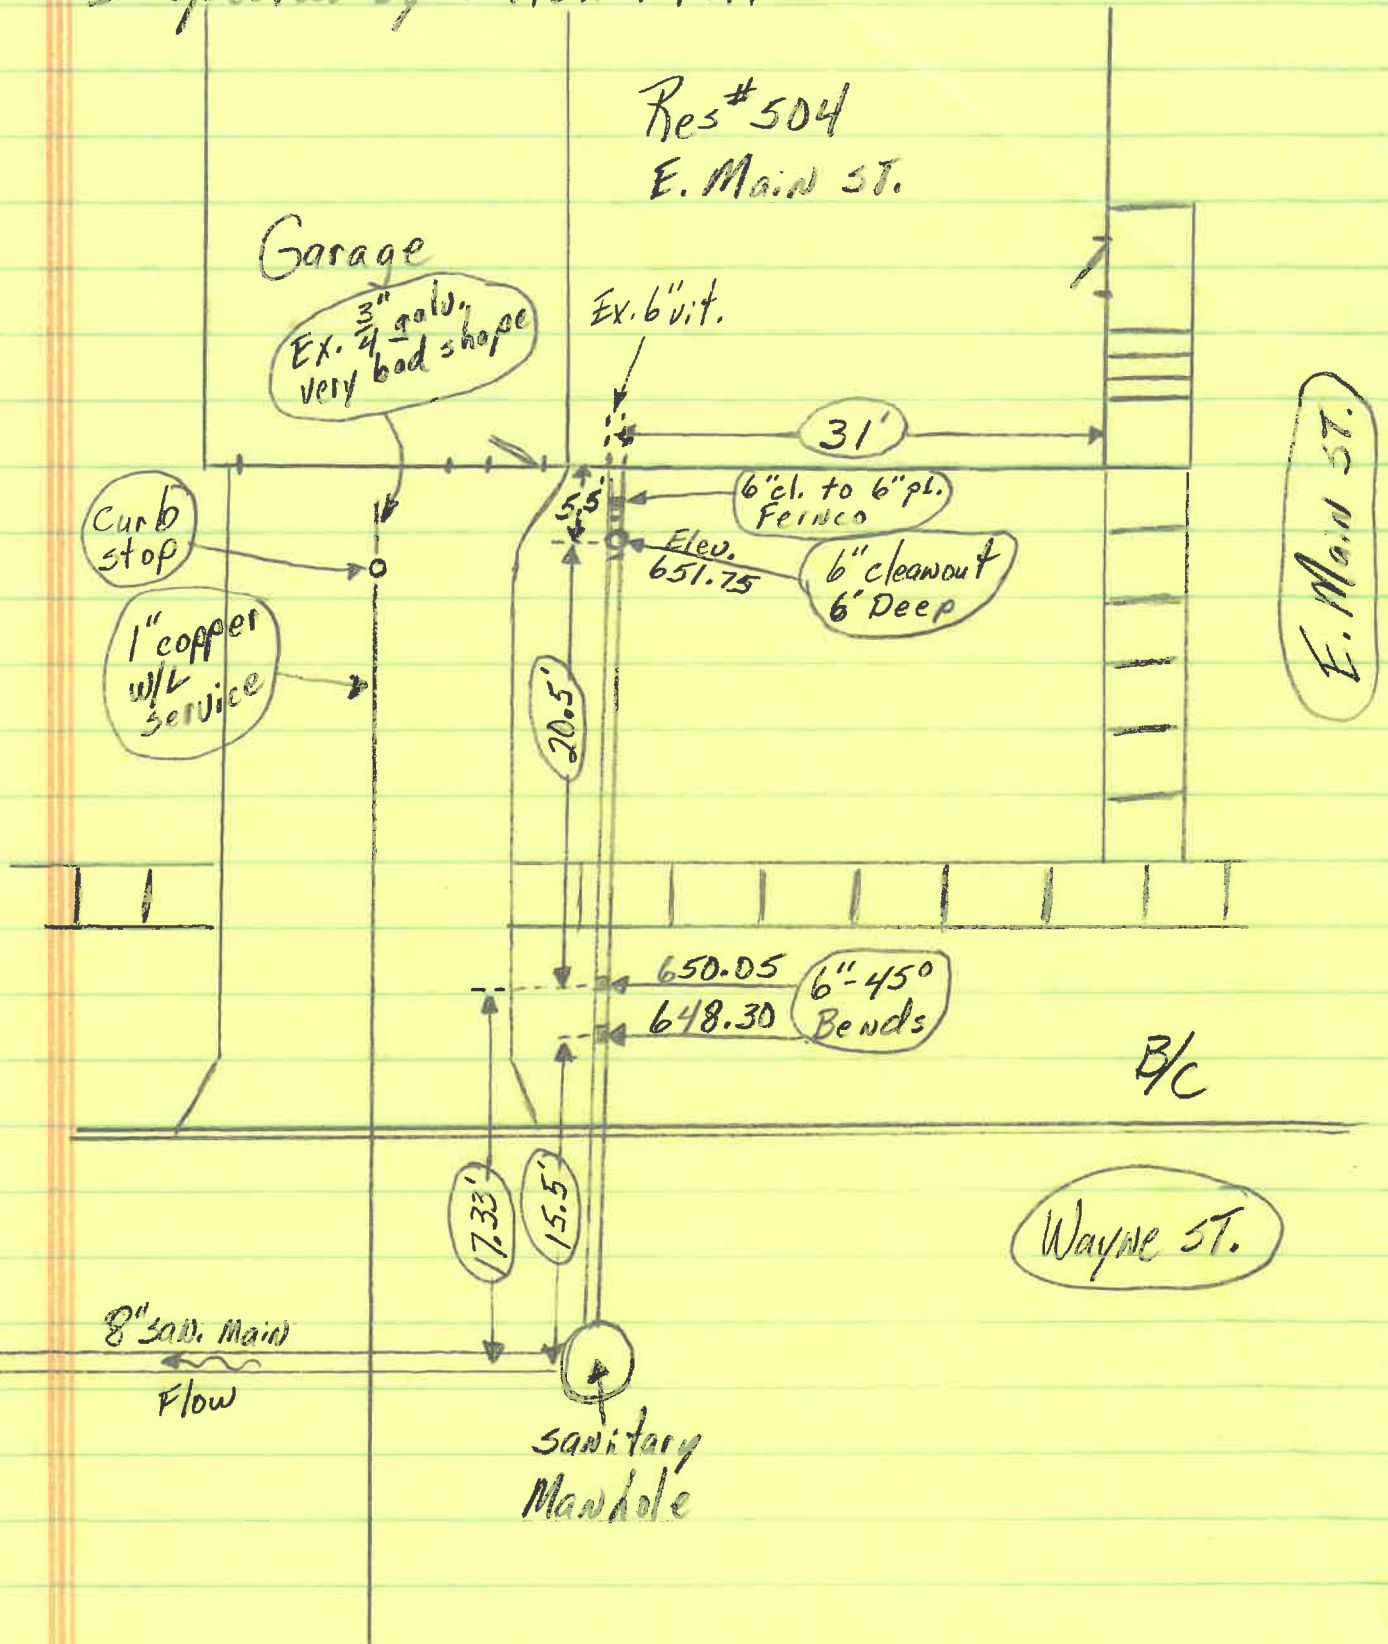 Res #504
E. Main ST.
Garage
Ex. 3/4" galv.
very bad shape
Ex. 6" vit.
31'
E. Main ST.
Curb
stop
5.5'
6" cl. to 6" pl.
Fernco
Elev.
651.75
6" cleanout
6' Deep
1" copper
W/L
service
20.5'
650.05
648.30
6"-45°
Bends
B/C
17.33'
15.5'
Wayne ST.
8" san. Main
Flow
sanitary
Manhole